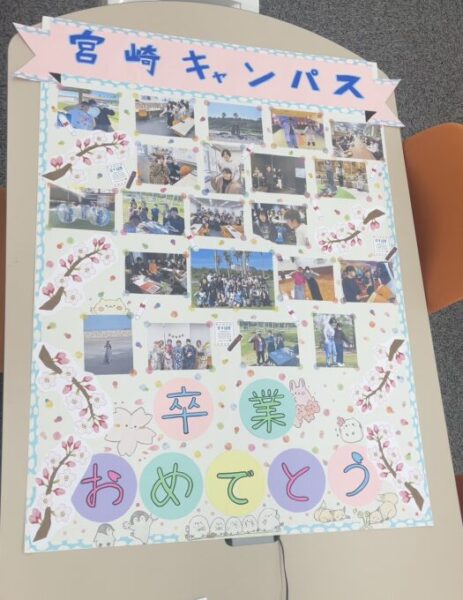 宮崎キャンパス
卒業
おめでとう